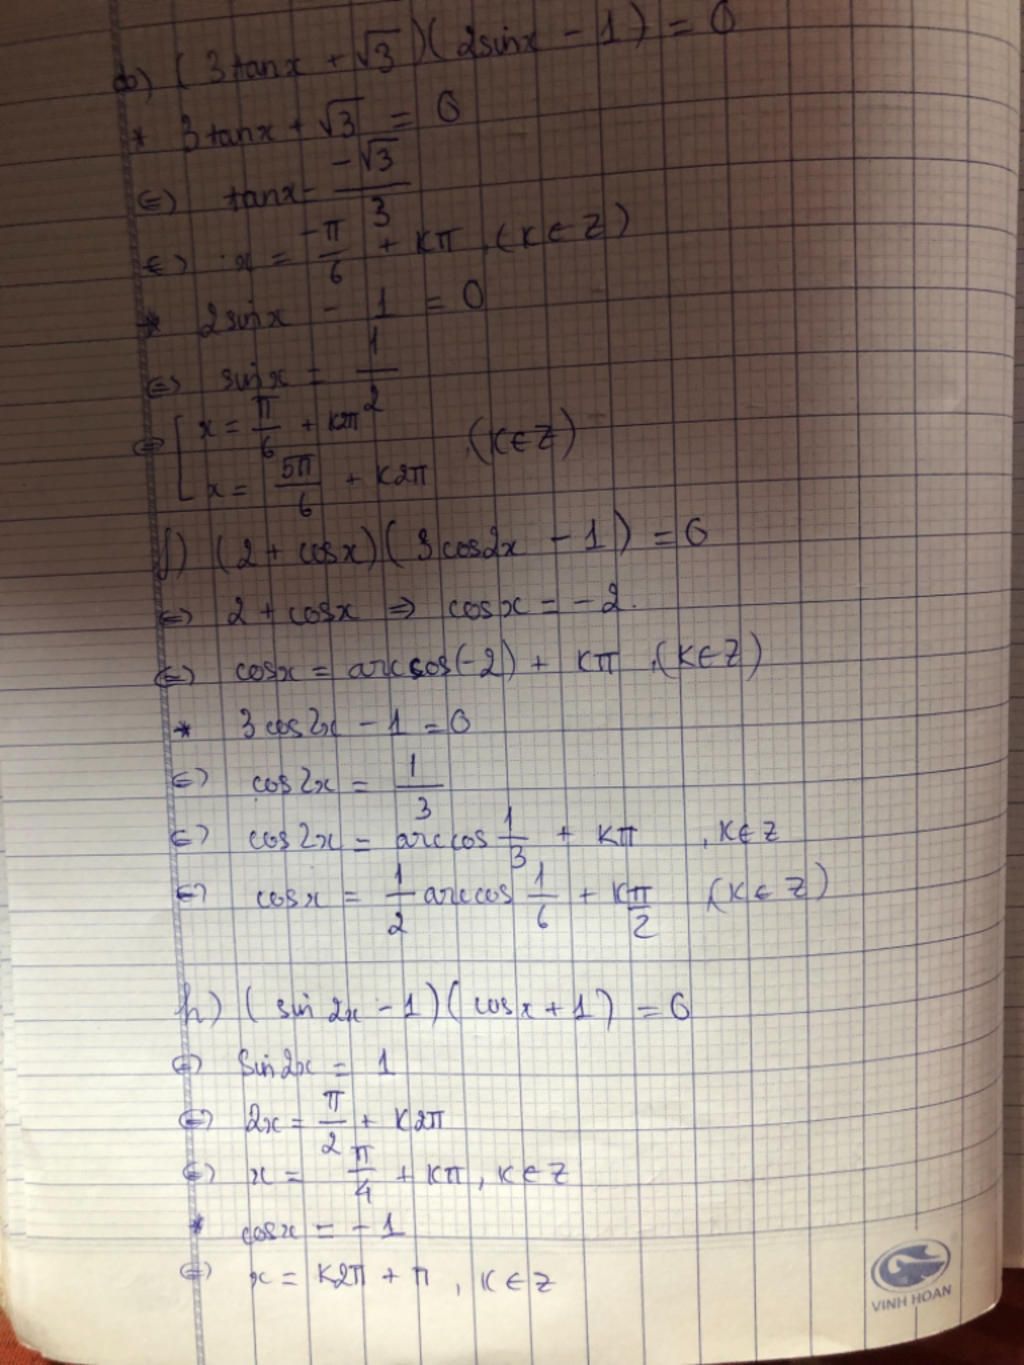 b) (3tanx + √3)(2sinx - 1) = 0
* 3tanx + √3 = 0
⇔ tanx = -√3/3
⇔ x = -π/6 + kπ, (k ∈ Z)
* 2sinx - 1 = 0
⇔ sinx = 1/2
⇔ [ x = π/6 + k2π
x = 5π/6 + k2π , (k ∈ Z)
f) (2 + cosx)(3cos2x - 1) = 0
⇔ 2 + cosx ⇒ cosx = -2.
⇔ cosx = arccos(-2) + kπ, (k ∈ Z)
* 3cos2x - 1 = 0
⇔ cos2x = 1/3
⇔ cos2x = arccos 1/3 + kπ , k ∈ Z
⇔ cosx = 1/2 arccos 1/6 + kπ/2 (k ∈ Z)
h) (sin2x - 1)(cosx + 1) = 0
⇔ Sin2x = 1
⇔ 2x = π/2 + k2π
⇔ x = π/4 + kπ, k ∈ Z
* cosx = -1
⇔ x = k2π + π, k ∈ Z
VINH HOAN